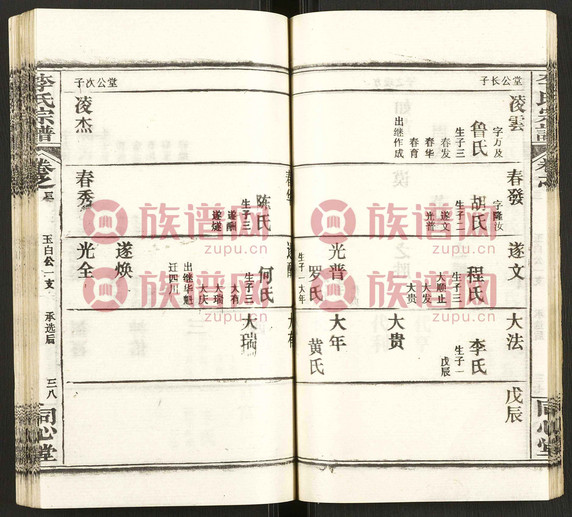 堂公長子
凌雲
字万及
魯氏
生子三
春发
春华
春育
出继作成
春發
字隆汝
胡氏
生子二
遂文
光普
遂文
程氏
生子三
大顺止
大发
大贵
光普
罗氏
生子一大年
大法
李氏
生子一
戊辰
大貴
大年
黄氏
戊辰
堂公次子
凌杰
陈氏
生子三
遂酬
遂燧
春秀
遂焕
何氏
生子三
大有
大瑞
大庆
出继华魁
迁四川
光全
大瑞
李氏宗譜
卷之三
玉白公一支
承选后
三八
同心堂
族谱网
zupu.cn